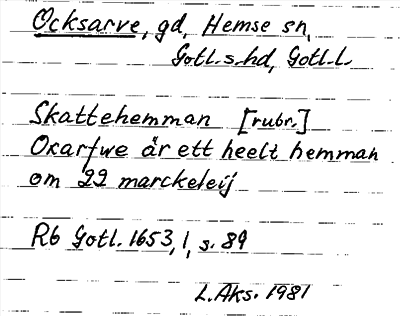 Ocksarve, gd, Hemse sn,
Gotl.s.hd, Gotl.l.
Skattehemman [rubr.]
Oxarfwe är ett heelt hemman
om 22 marckeleij
Rb Gotl. 1653, 1, s. 89
L. Aks. 1981